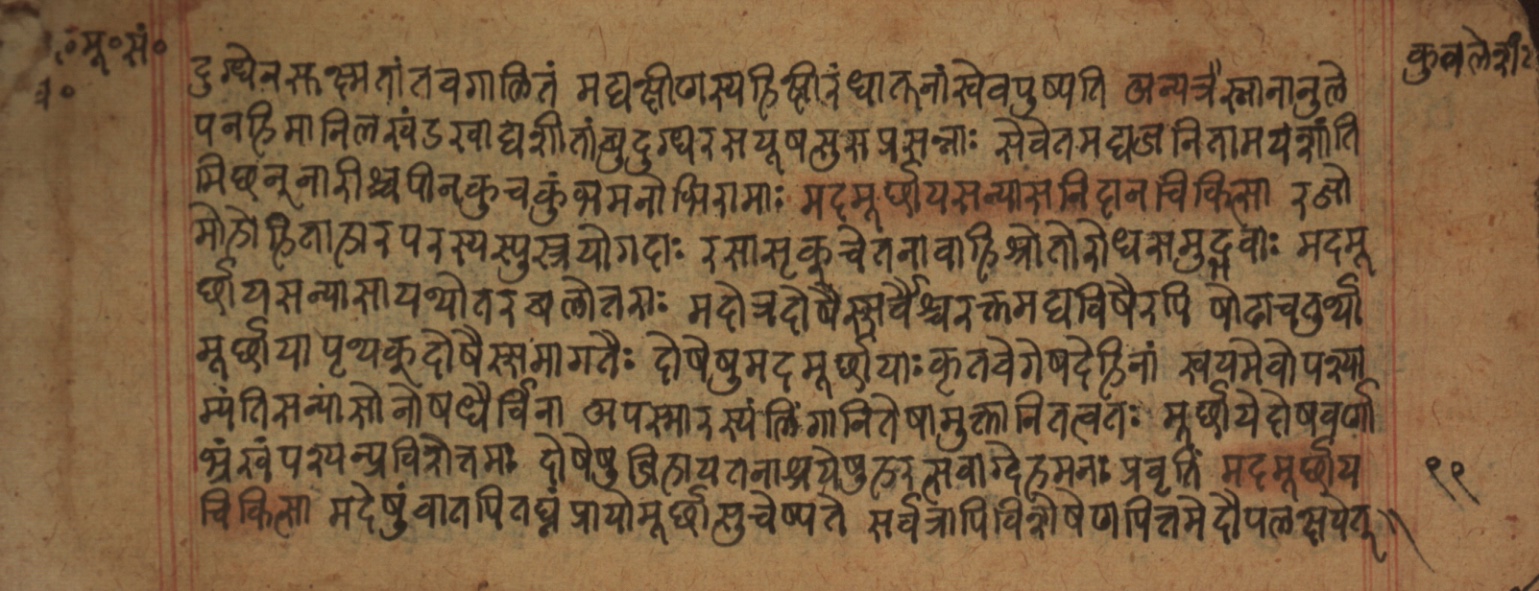 र॰मू॰सं॰
१॰
कुवलेशी
दुग्धेनसक्तक्ष्मतांतवगालितं मद्यक्षीणस्यहिक्षीरंधातूनांस्वेवपुष्पति अन्यत्रैस्नानानुले
पनहिमानिलखंडखाद्यशीतांबुदुग्धरसयूषसुराप्रसन्नाः सेवेतमद्यजनितामयशांति
मिछन्नारीश्चपीनकुचकुंभमनोभिरामाः मदमूर्छायसन्यासनिदानचिकित्सा रजो
मोहोहिताहारपरस्यस्युस्त्रयोगदाः रसासृक्चेतनावाहिश्रोतोरोधसमुद्भवाः मदमू
र्छायसन्यासायथोतरबलोत्तराः मदोत्रदोषैस्सर्वैश्चरक्तमद्यविषैरपि षोढाचतुर्था
मूर्छायापृथक्दोषैस्समागतैः दोषेषुमदमूर्छायाःकृतवेगेषदेहिनां स्वयमेवोपश्या
म्यंतिसन्यासोनोषधैर्विना अपस्मारस्यंलिंगानितेषामुक्तानितत्वतः मूर्छायेदोषवर्णा
भ्रंखंपश्यन्प्रविशेत्तमः दोषेषुजिहायतनाश्रयेषुहरत्सवाग्देहमनः प्रवृतिं मदमूर्छाय
११
चिकित्सा मदेषुंवातपितघ्नंप्रायोमूर्छासुचेष्पते सर्वत्रापिविशेषेणपित्तमेदौपलक्षयेत्॥